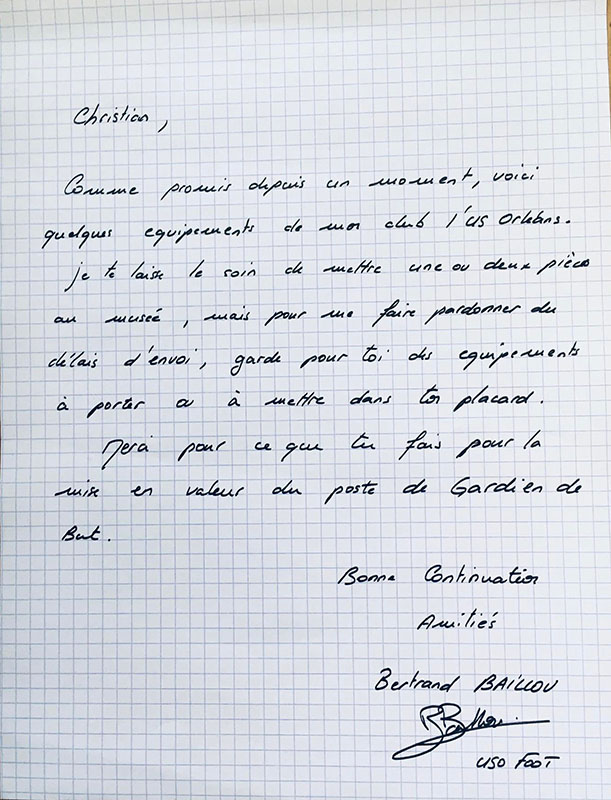 Christian,
Comme promis depuis un moment, voici
quelques equipements de mon club l'US Orléans.
je te laisse le soin de mettre une ou deux pièces
au museé, mais pour me faire pardonner du
délais d'envoi, garde pour toi des equipements
à porter ou à mettre dans ton placard.
Merci pour ce que tu fais pour la
mise en valeur du poste de Gardien de
But.
Bonne Continuation
Amitiés
Bertrand BAILLOU
USO FOOT